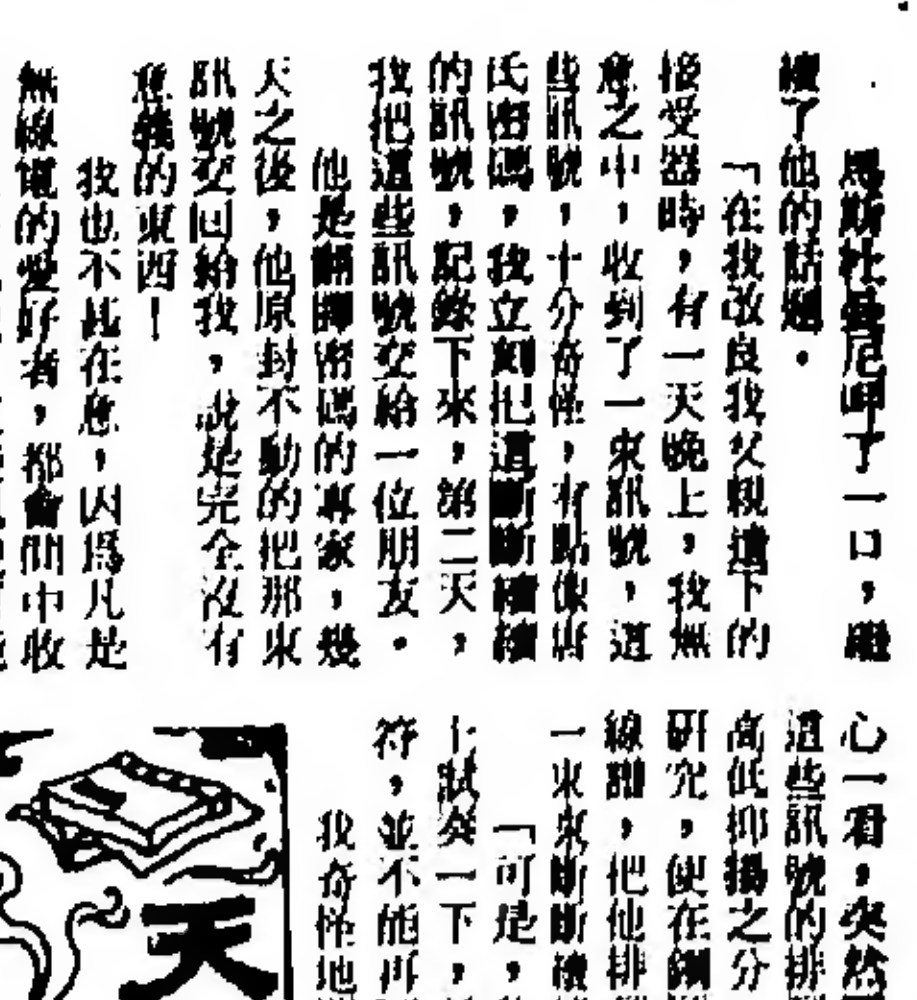 馬斯杜曼尼呷了一口，繼
續了他的話題．
「在我改良我父親遺下的
接受器時，有一天晚上，我無
意之中，收到了一束訊號，這
些訊號，十分奇怪，有點像唐
氏密碼，我立刻把這斷斷續續
的訊號，記錄下來，第二天，
我把這些訊號交給一位朋友．
他是翻譯密碼的專家，幾
天之後，他原封不動的把那束
訊號交回給我，說是完全沒有
意義的東西！
我也不甚在意，因爲凡是
無線電的愛好者，都會間中收
心一看，突然
這些訊號的排
高低抑揚之分
研究，便在鋼
線譜，把他排
一束束斷斷續
「可是，
上試奏一下，
符，並不能再
我奇怪地
天